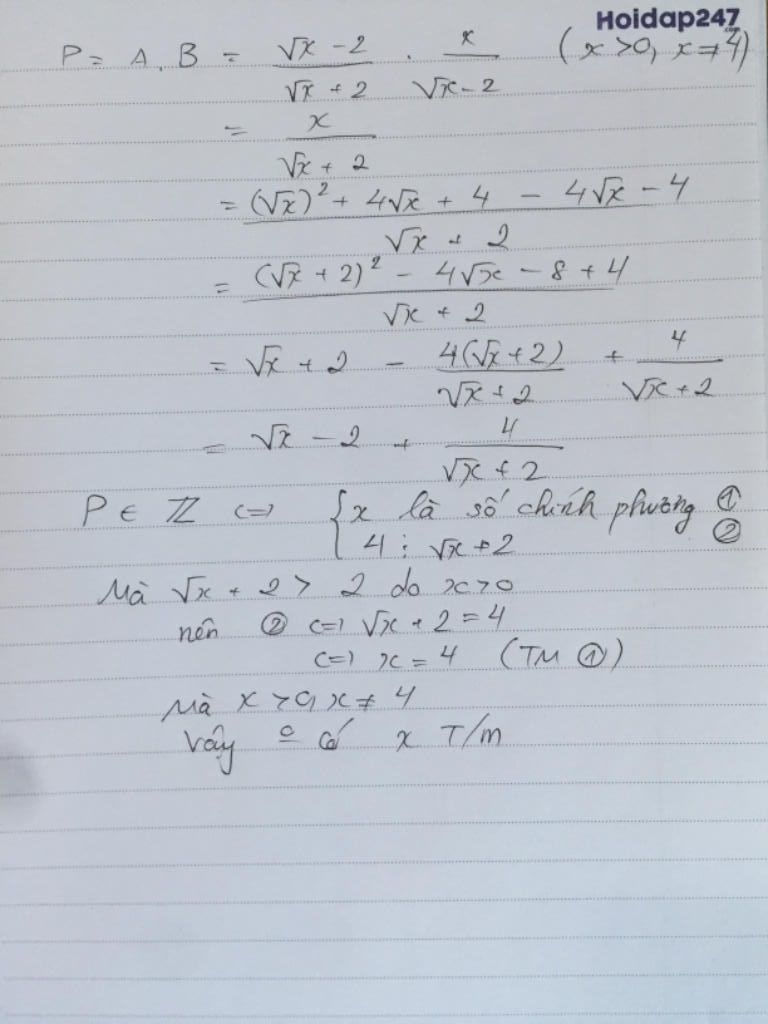 Hoidap247
P = A.B = (√x - 2)/(√x + 2) . x/(√x - 2) (x > 0, x ≠ 4)
= x/(√x + 2)
= ((√x)² + 4√x + 4 - 4√x - 4)/(√x + 2)
= ((√x + 2)² - 4√x - 8 + 4)/(√x + 2)
= √x + 2 - 4(√x + 2)/(√x + 2) + 4/(√x + 2)
= √x - 2 + 4/(√x + 2)
P ∈ ℤ <=> { x là số chính phương ①
4 ⋮ √x + 2 ②
Mà √x + 2 > 2 do x > 0
nên ② <=> √x + 2 = 4
<=> x = 4 (TM ①)
Mà x > 0, x ≠ 4
Vậy o có x T/m